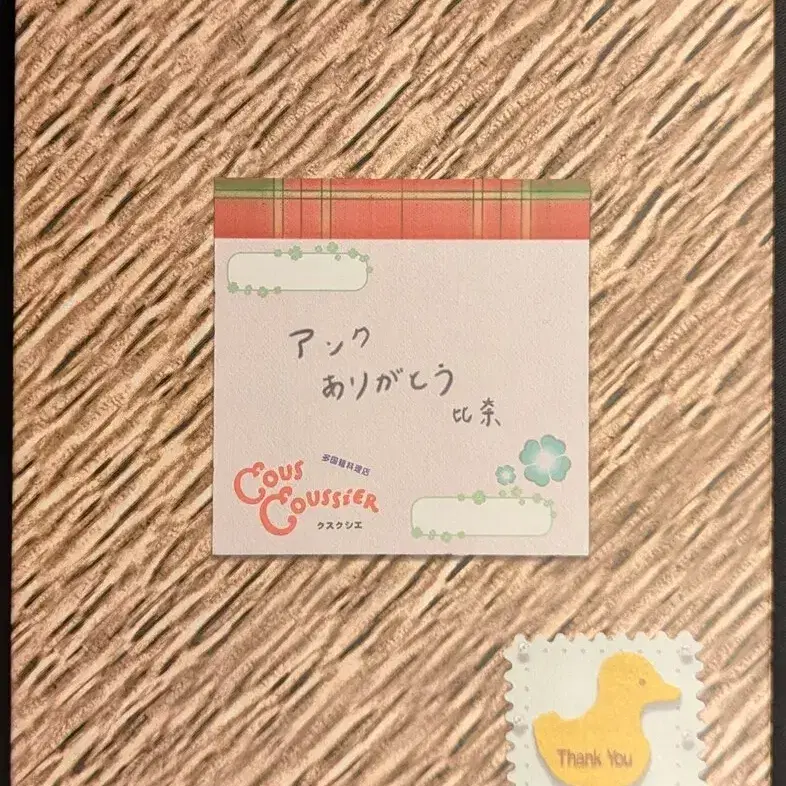 アンク
ありがとう
比奈
多国籍料理店
COUS
COUSSIER
クスクシエ
Thank You